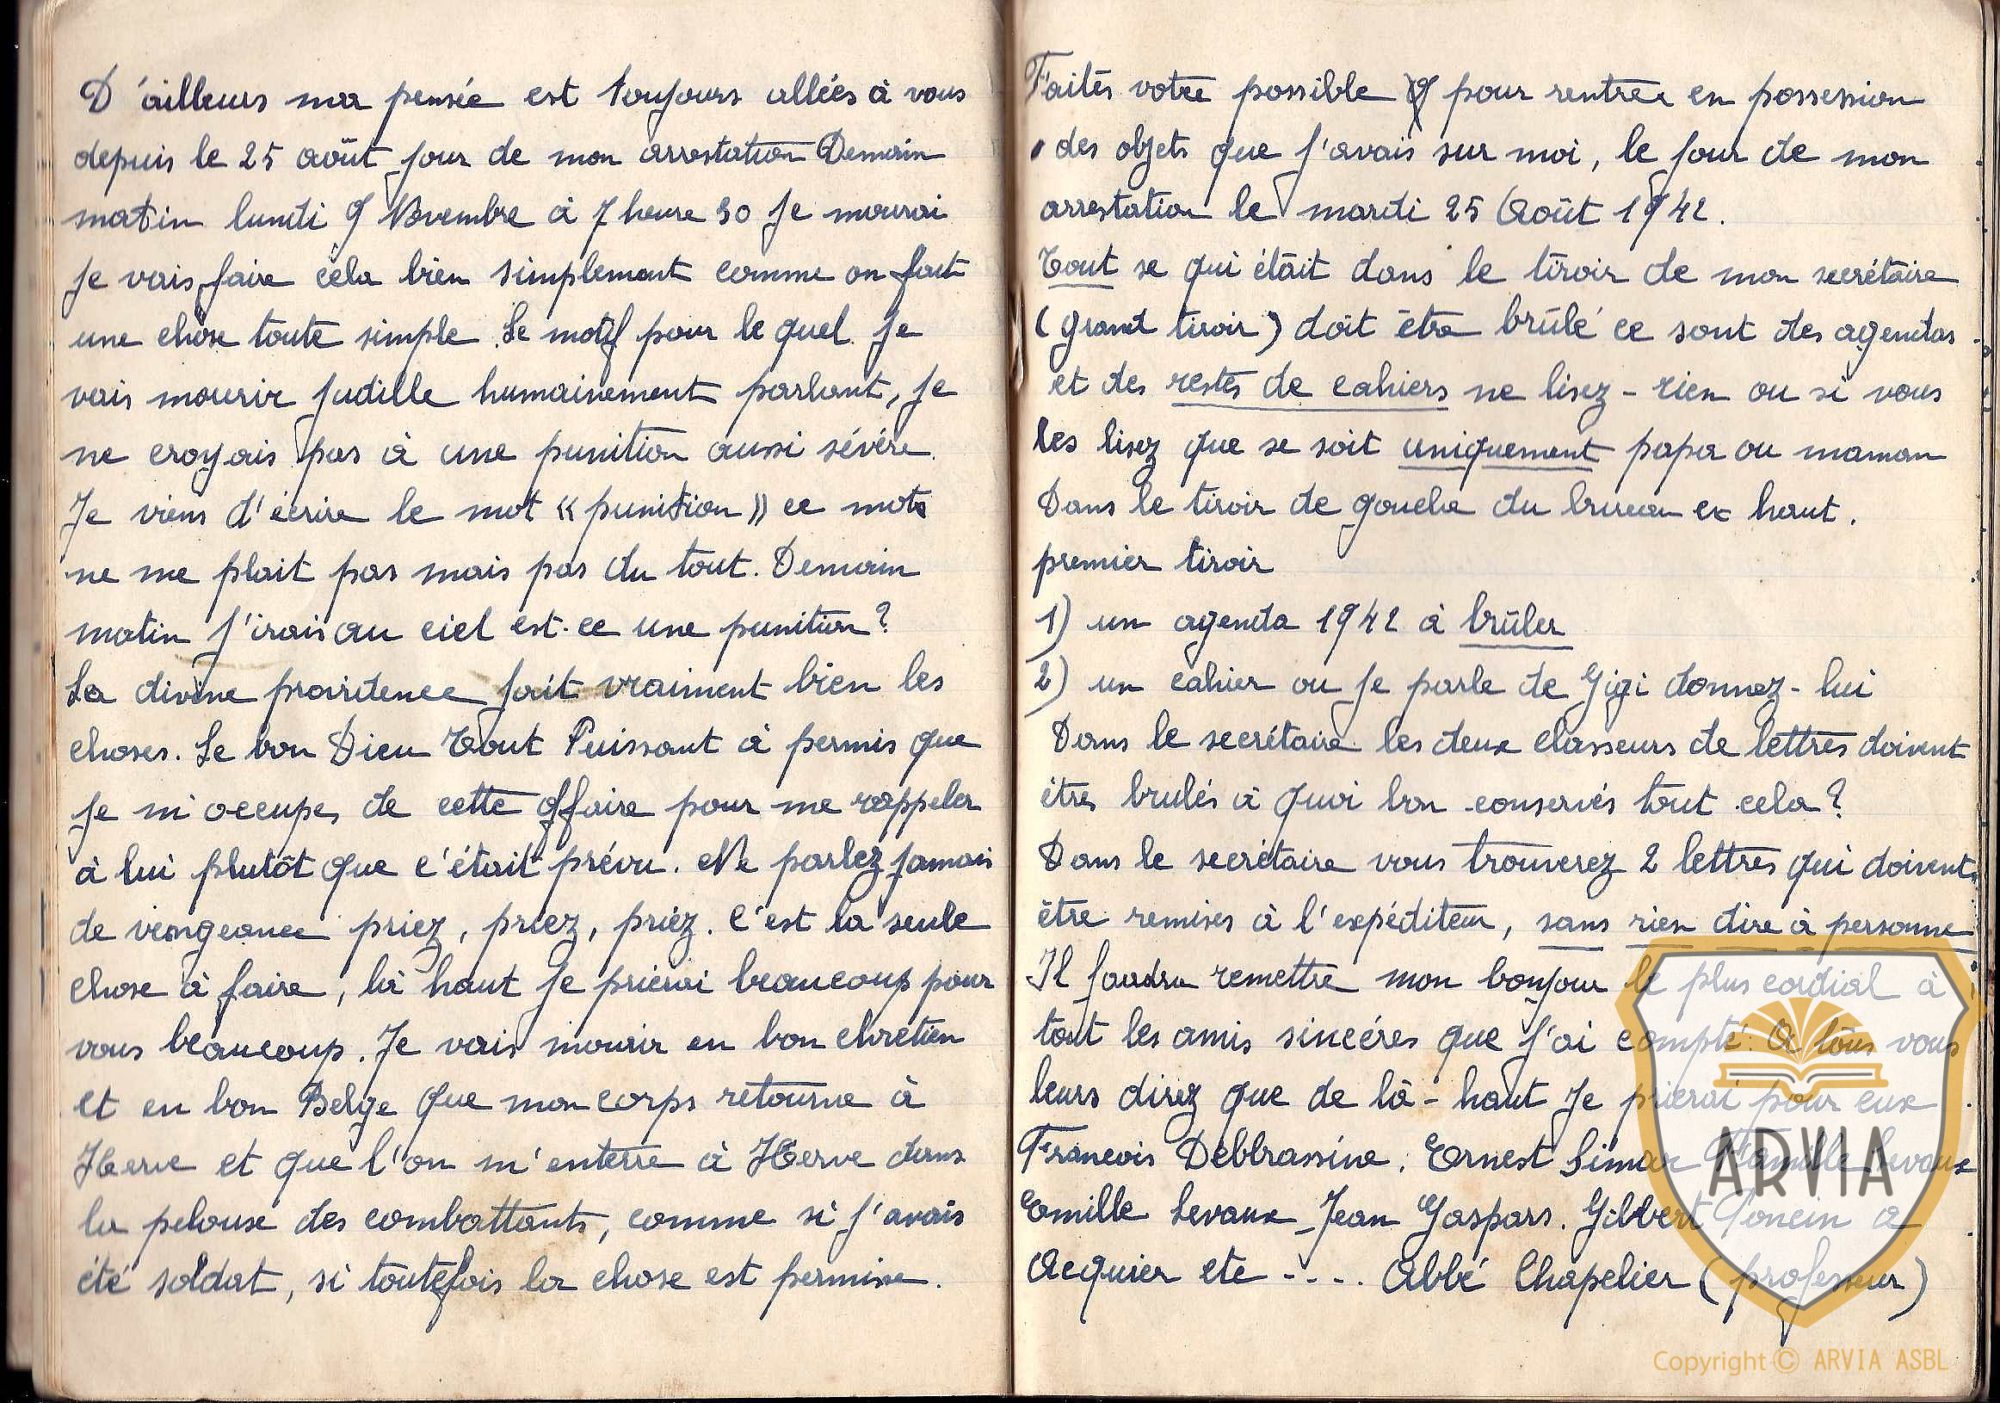 D'ailleurs ma pensée est toujours allées à vous
depuis le 25 août jour de mon arrestation Demain
matin lundi 9 Novembre à 7 heure 30 je mourai
je vais faire cela bien simplement comme on fait
une chose toute simple. Le motif pour le quel je
vais mourir judille humainement parlant, je
ne croyais pas à une punition aussi sévère.
Je viens d'écrire le mot « punition » ce mots
ne me plait pas mais pas du tout. Demain
matin j'irais au ciel est-ce une punition?
La divine providence fait vraiment bien les
choses. Le bon Dieu Tout Puissant à permis que
je m'occupe, de cette affaire pour me rappeler
à lui plutôt que c'était prévu. Ne parlez jamais
de vengeance priez, priez, priéz. C'est la seule
chose à faire, là haut je prierai beaucoup pour
vous beaucoup. Je vais mourir en bon chrétien
et en bon Belge que mon corps retourne à
Herve et que l'on m'enterre à Herve dans
la pelouse des combattants, comme si j'avais
été soldat, si toutefois la chose est permise.
Faites votre possible pour rentrer en possession
des objets que j'avais sur moi, le jour de mon
arrestation le mardi 25 Août 1942.
Tout se qui était dans le tiroir de mon secrétaire
(grand tiroir) doit être brûlé ce sont des agendas
et des restes de cahiers ne lisez-rien ou si vous
les lisez que se soit uniquement papa ou maman
Dans le tiroir de gauche du bureau en haut.
premier tiroir
1) un agenda 1942 à brûler
2) un cahier ou je parle de Gigi donnez-lui
Dans le secrétaire les deux classeurs de lettres doivent
êtres brulés à quoi bon conservés tout cela?
Dans le secrétaire vous trouverez 2 lettres qui doivent
être remises à l'expéditeur, sans rien dire à personne
Il faudra remettre mon bonjour le plus cordial à
tout les amis sincéres que j'ai compté. A tous vous
leurs direz que de là-haut je prierai pour eux
Francois Debbrassine. Ernest Simar Famille Levaux
Emille Levaux Jean Gaspars. Gilbert
Acquier etc ---. Abbé Chapelier (professeur)
ARVIA
Copyright © ARVIA ASBL